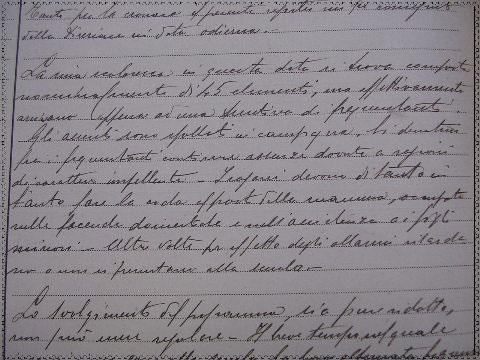 Tanto per la cronaca
della Direzione in data odierna.
La mia scolaresca in questa data si trova composta
nominativamente di 45 elementi, ma effettivamente
arrivano appena ad una trentina di frequentanti.
Gli assenti sono sfollati in campagna, si dovettero
fra i frequentanti continue assenze dovute a ragioni
di carattere impellente - I ragazzi devono di tanto in
tanto fare la coda al posto della mamma, occupata
nelle faccende domestiche e nell'assistenza ai figli
minori - Altre volte per effetto degli allarmi ritarda
no o non si presentano alla scuola. -
Lo svolgimento del programma, sia pure ridotto,
non può essere regolare - Il breve tempo nel quale